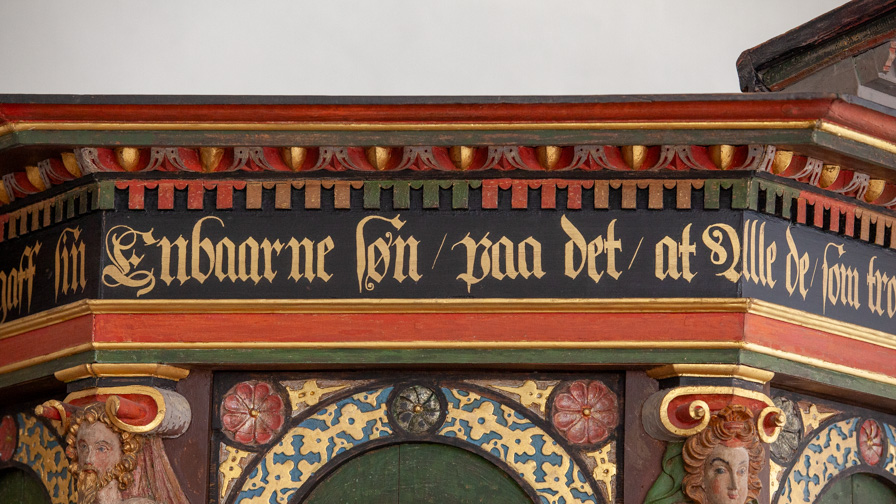 gaff sin̄ Enbaarne søn̄ / paa det / at Alle de / som̄ tro